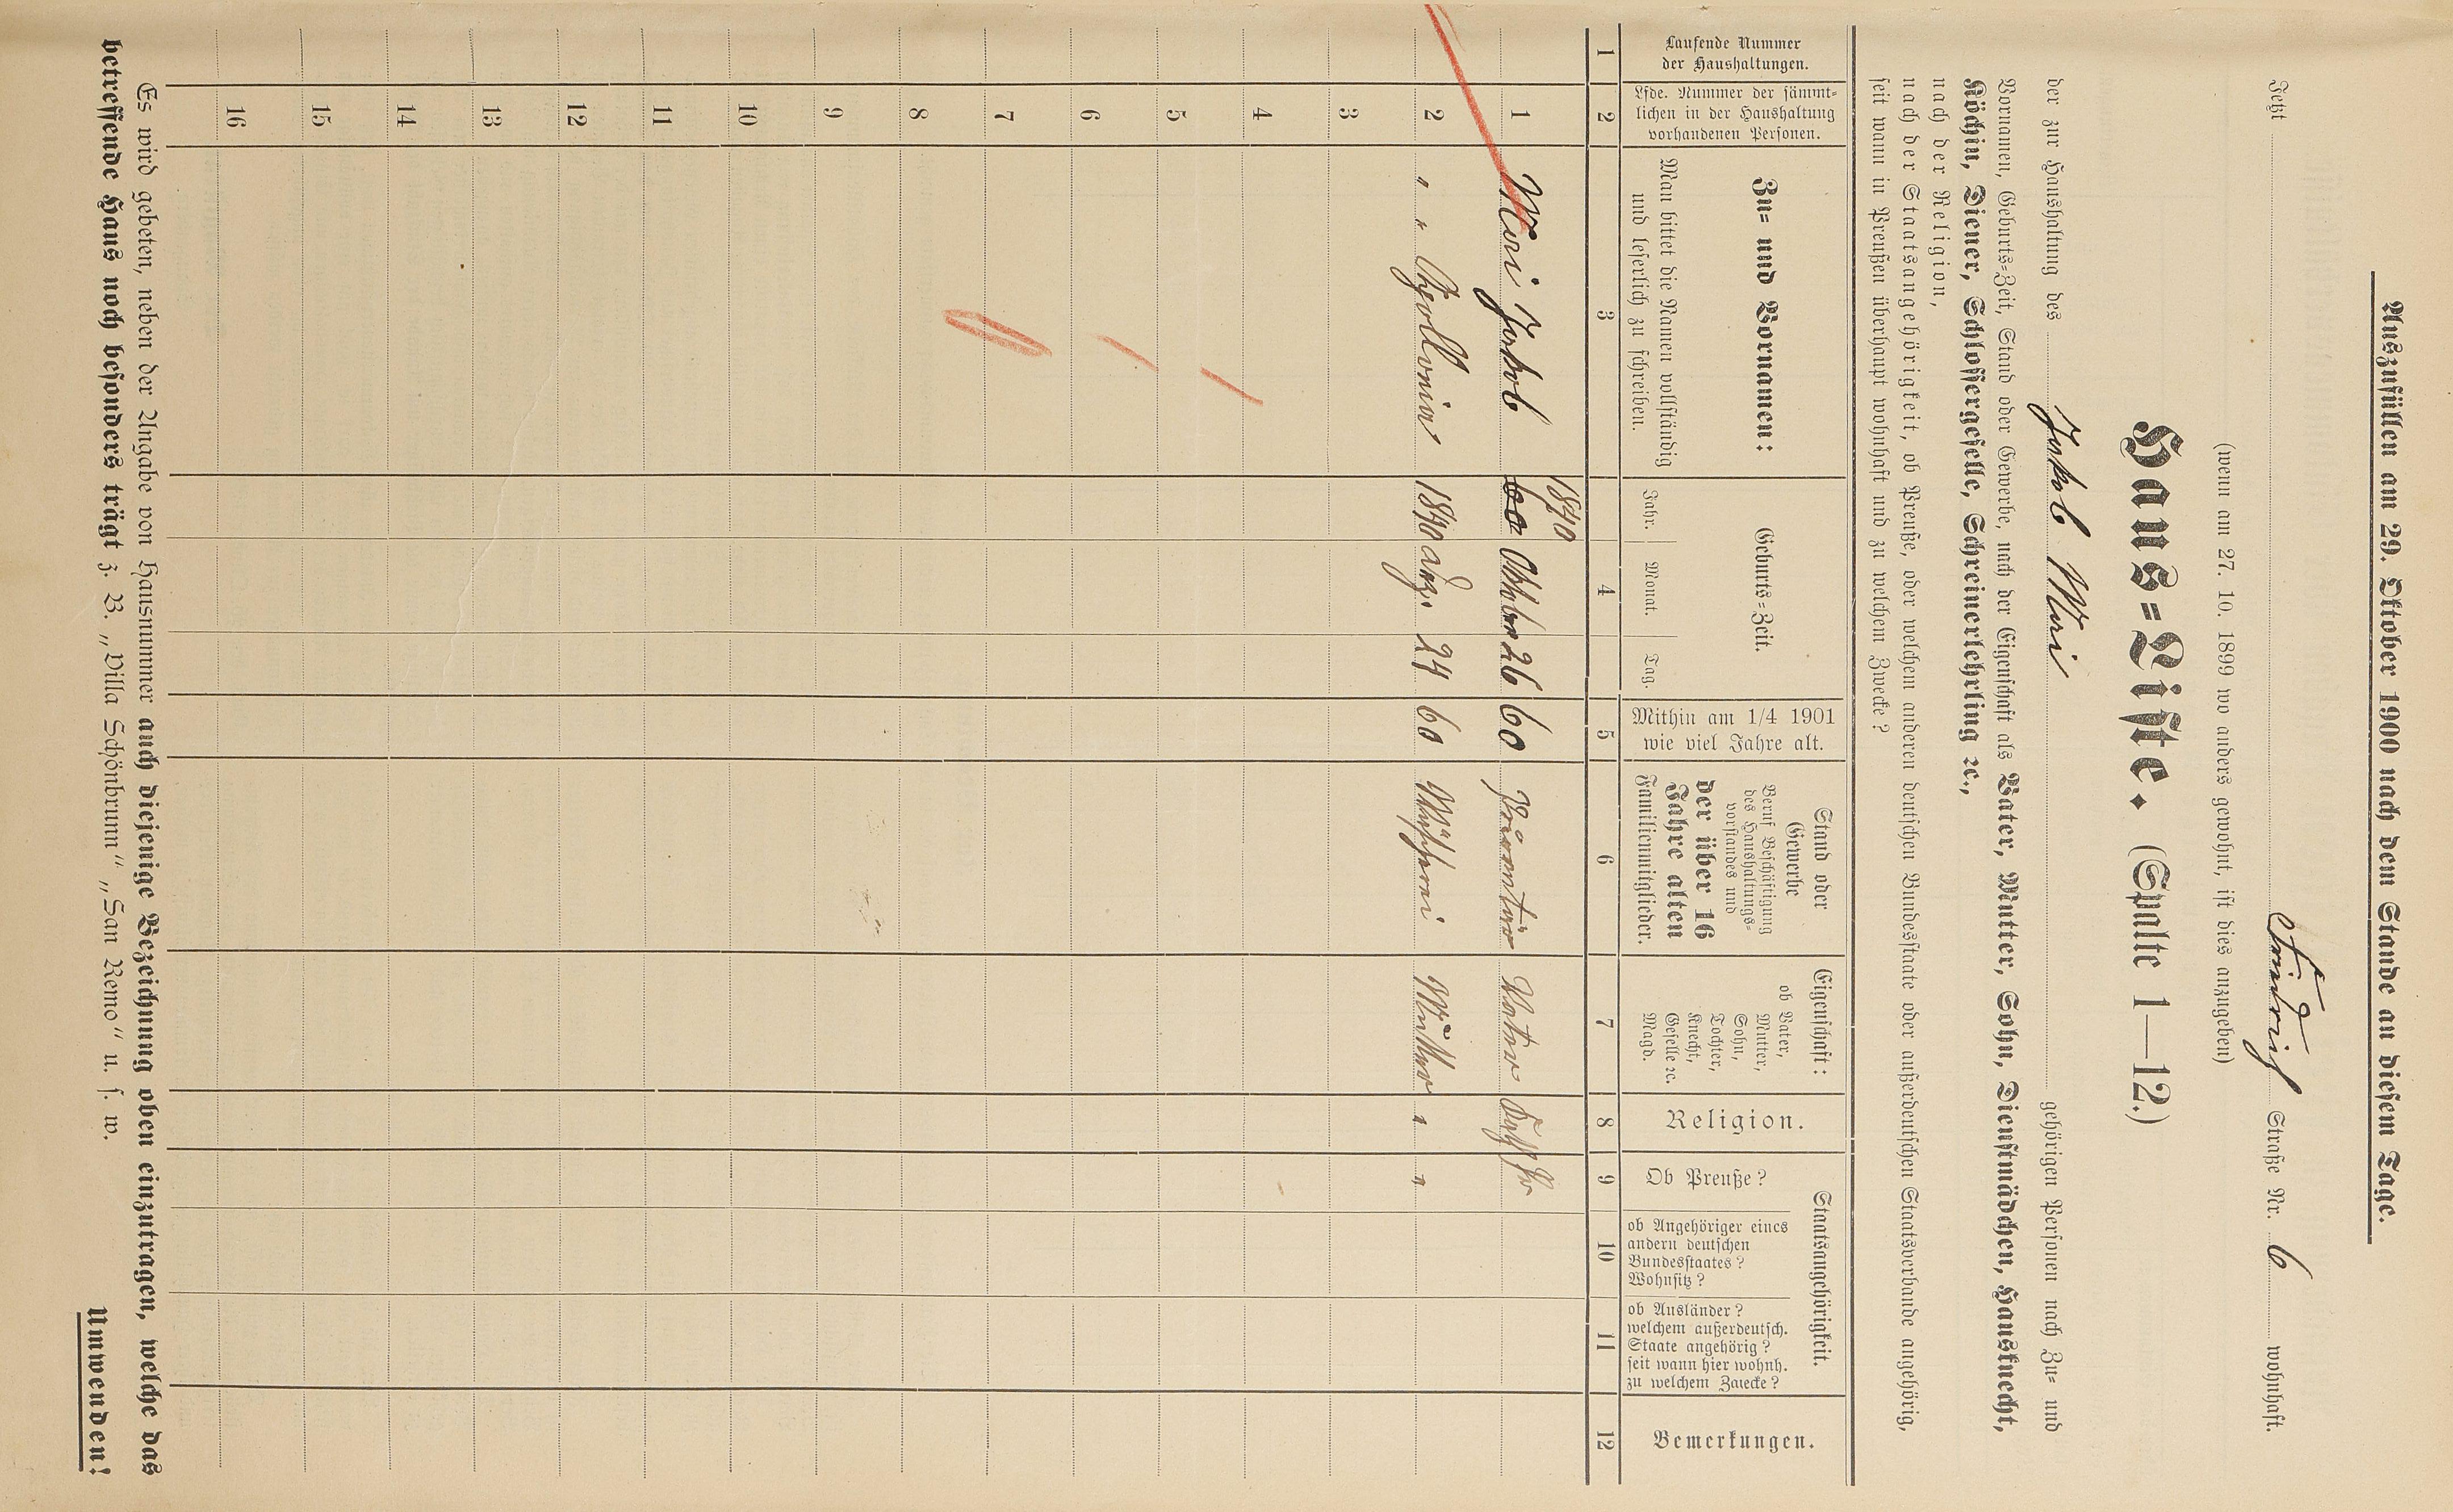 Auszufüllen am 29. Oktober 1900 nach dem Stande an diesem Tage.
Jetzt Straße Nr. 6 wohnhaft.
(wenn am 27. 10. 1899 wo anders gewohnt, ist dies anzugeben)
Haus=Liste. (Spalte 1—12.)
der zur Haushaltung des Jakob Muri gehörigen Personen nach Zu= und
Vornamen, Geburts=Zeit, Stand oder Gewerbe, nach der Eigenschaft als Vater, Mutter, Sohn, Dienstmädchen, Hausknecht,
Köchin, Diener, Schlossergeselle, Schreinerlehrling ꝛc.,
nach der Religion,
nach der Staatsangehörigkeit, ob Preuße, oder welchem anderen deutschen Bundesstaate oder außerdeutschen Staatsverbande angehörig,
seit wann in Preußen überhaupt wohnhaft und zu welchem Zwecke?
Laufende Nummer
der Haushaltungen.
Lfde. Nummer der sämmt=
lichen in der Haushaltung
vorhandenen Personen.
Zu= und Vornamen:
Man bittet die Namen vollständig
und leserlich zu schreiben.
Geburts=Zeit.
Jahr. Monat. Tag.
Mithin am 1/4 1901
wie viel Jahre alt.
Stand oder
Gewerbe
Beruf Beschäftigung
des Haushaltungs=
vorstandes und
der über 16
Jahre alten
Familienmitglieder.
Eigenschaft:
ob Vater,
Mutter,
Sohn,
Tochter,
Knecht,
Geselle ꝛc.
Magd.
Religion.
Staatsangehörigkeit.
Ob Preuße?
ob Angehöriger eines
andern deutschen
Bundesstaates?
Wohnsitz?
ob Ausländer?
welchem außerdeutsch.
Staate angehörig?
seit wann hier wohnh.
zu welchem Zwecke?
Bemerkungen.
1 2 3 4 5 6 7 8 9 10 11 12
1840
1 Muri Jakob 60 Oktober 26 60 Vater
2 " " Apollonia 1840 24 60 Mutter " "
3
4
5
6
7
8
9
10
11
12
13
14
15
16
Es wird gebeten, neben der Angabe von Hausnummer auch diejenige Bezeichnung oben einzutragen, welche das
betreffende Haus noch besonders trägt z. B. „Villa Schönbrunn“ „San Remo“ u. s. w.
Umwenden!